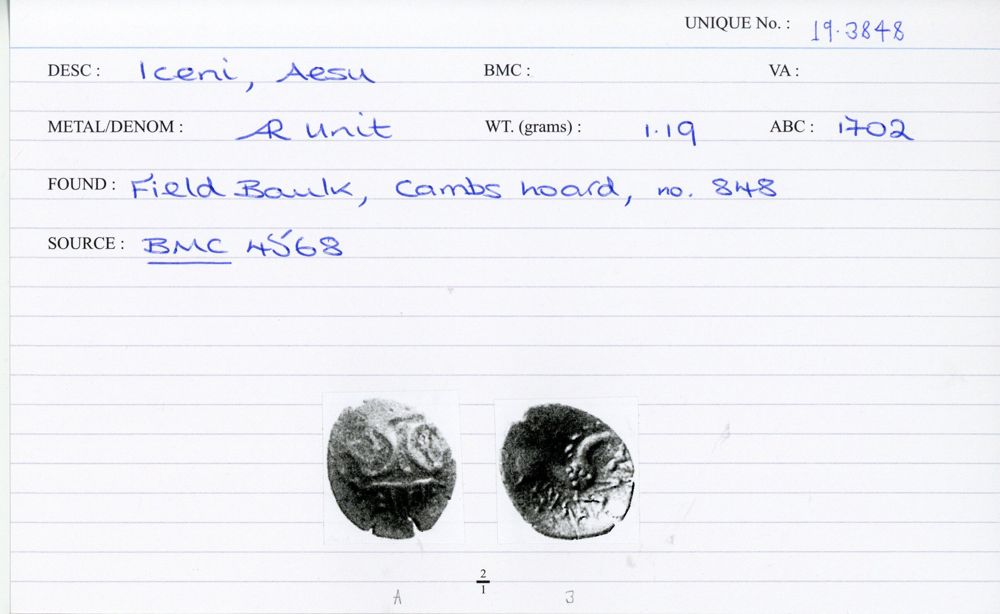 UNIQUE No. : 19.3848
DESC : Iceni, Aesu BMC : VA :
METAL/DENOM : AR Unit WT. (grams) : 1.19 ABC : 1702
FOUND : Field Baulk, Cambs hoard, no. 848
SOURCE : BMC 4568
2
1
A 3